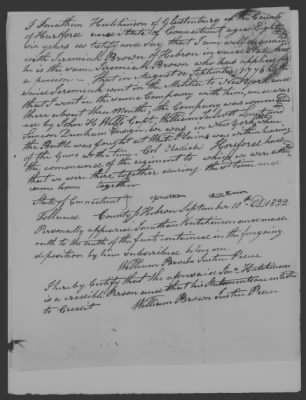 I Jonathan Hutchinson of Glastonbury in the County
of Hartford and State of Connecticut aged Eighty
six years do testify and say that I am well acquainted
with Jeremiah Brown of Hebron in said State that
he is the same Jeremiah Brown who has applied for
a pension. That in August or September 1776 the
said Jeremiah went in the Militia to New York and
that I went in the same Company with him, and was
there about three months, the Company was commanded
by John H Wells Capt, William Talcott Lieut
Simeon Dunham Ensign, we was in New York when
the Battle was fought at White Plains was within hearing
of the Guns at the time - Col Obadiah Horsford had
the command of the regiment to which we were attached
that we were there together during the time and
came home together
Jonathan Hutchinson
State of Connecticut
Tolland County ss Hebron September 10th AD 1832
Personally appeared Jonathan Hutchinson and made
oath to the truth of the facts contained in the foregoing
deposition by him subscribed before me
William Brown Justice Peace
I hereby Certify that the aforesaid Jona Hutchinson
is a credible Person and that his Statements are entitled
to Credit
William Brown Justice Peace